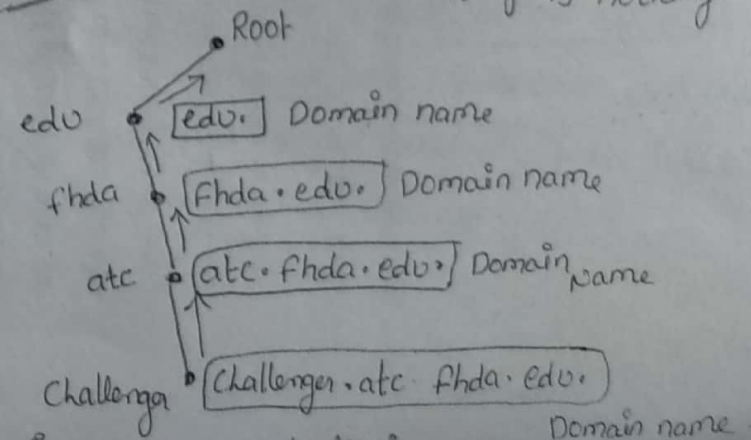 Root
edu edu. Domain name
fhda fhda.edu. Domain name
atc atc.fhda.edu. Domain Name
Challenger Challenger.atc fhda.edu.
Domain name